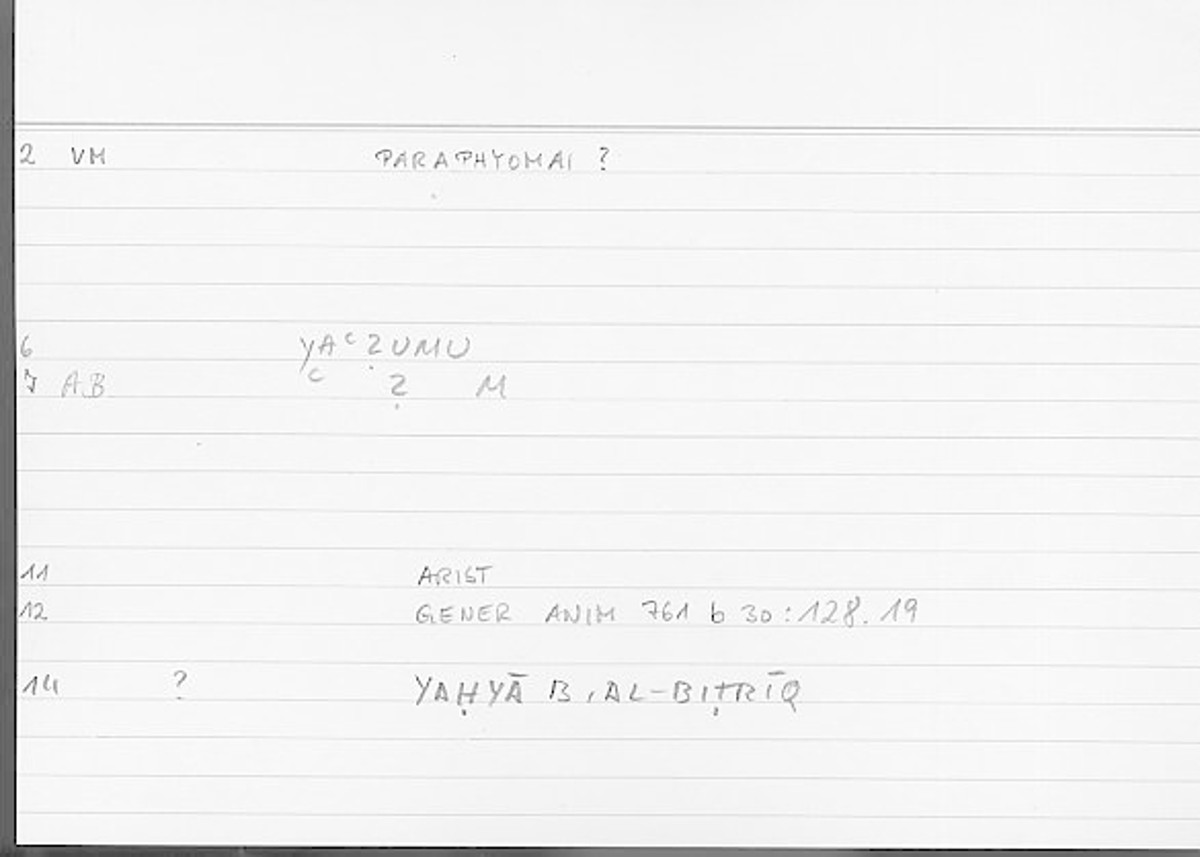 2 VM PARAPHYOMAI ?
6 YAᶜẒUMU
7 AB ᶜ Ẓ M
11 ARIST
12 GENER ANIM 761 b 30:128.19
14 ? YAḤYĀ B. AL-BIṬRĪQ